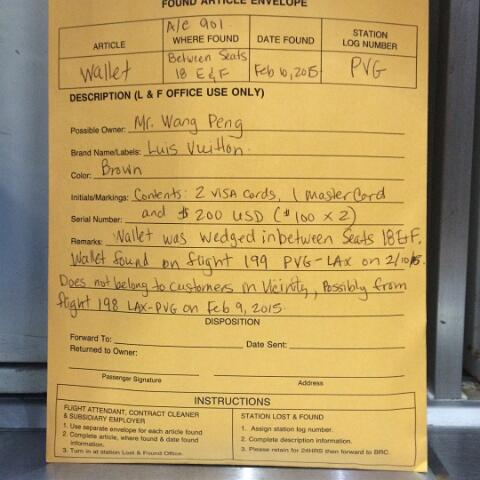 FOUND ARTICLE ENVELOPE
A/C 901
ARTICLE WHERE FOUND DATE FOUND STATION LOG NUMBER
Wallet Between Seats 18 E & F Feb 10, 2015 PVG
DESCRIPTION (L & F OFFICE USE ONLY)
Possible Owner: Mr. Wang Peng
Brand Name/Labels: Luis Vuitton.
Color: Brown
Initials/Markings: Contents: 2 VISA cards, 1 mastercard
Serial Number: and $200 USD ($100 x 2)
Remarks: Wallet was wedged inbetween Seats 18E+F.
Wallet found on flight 199 PVG-LAX on 2/10/15.
Does not belong to customers in Vicinity, Possibly from
flight 198 LAX-PVG on Feb 9, 2015.
DISPOSITION
Forward To: Date Sent:
Returned to Owner:
Passenger Signature Address
INSTRUCTIONS
FLIGHT ATTENDANT, CONTRACT CLEANER
& SUBSIDIARY EMPLOYER
1. Use separate envelope for each article found
2. Complete article, where found & date found
information.
3. Turn in at Station Lost & Found Office.
STATION LOST & FOUND
1. Assign station log number.
2. Complete description information.
3. Please retain for 24HRS then forward to BRC.